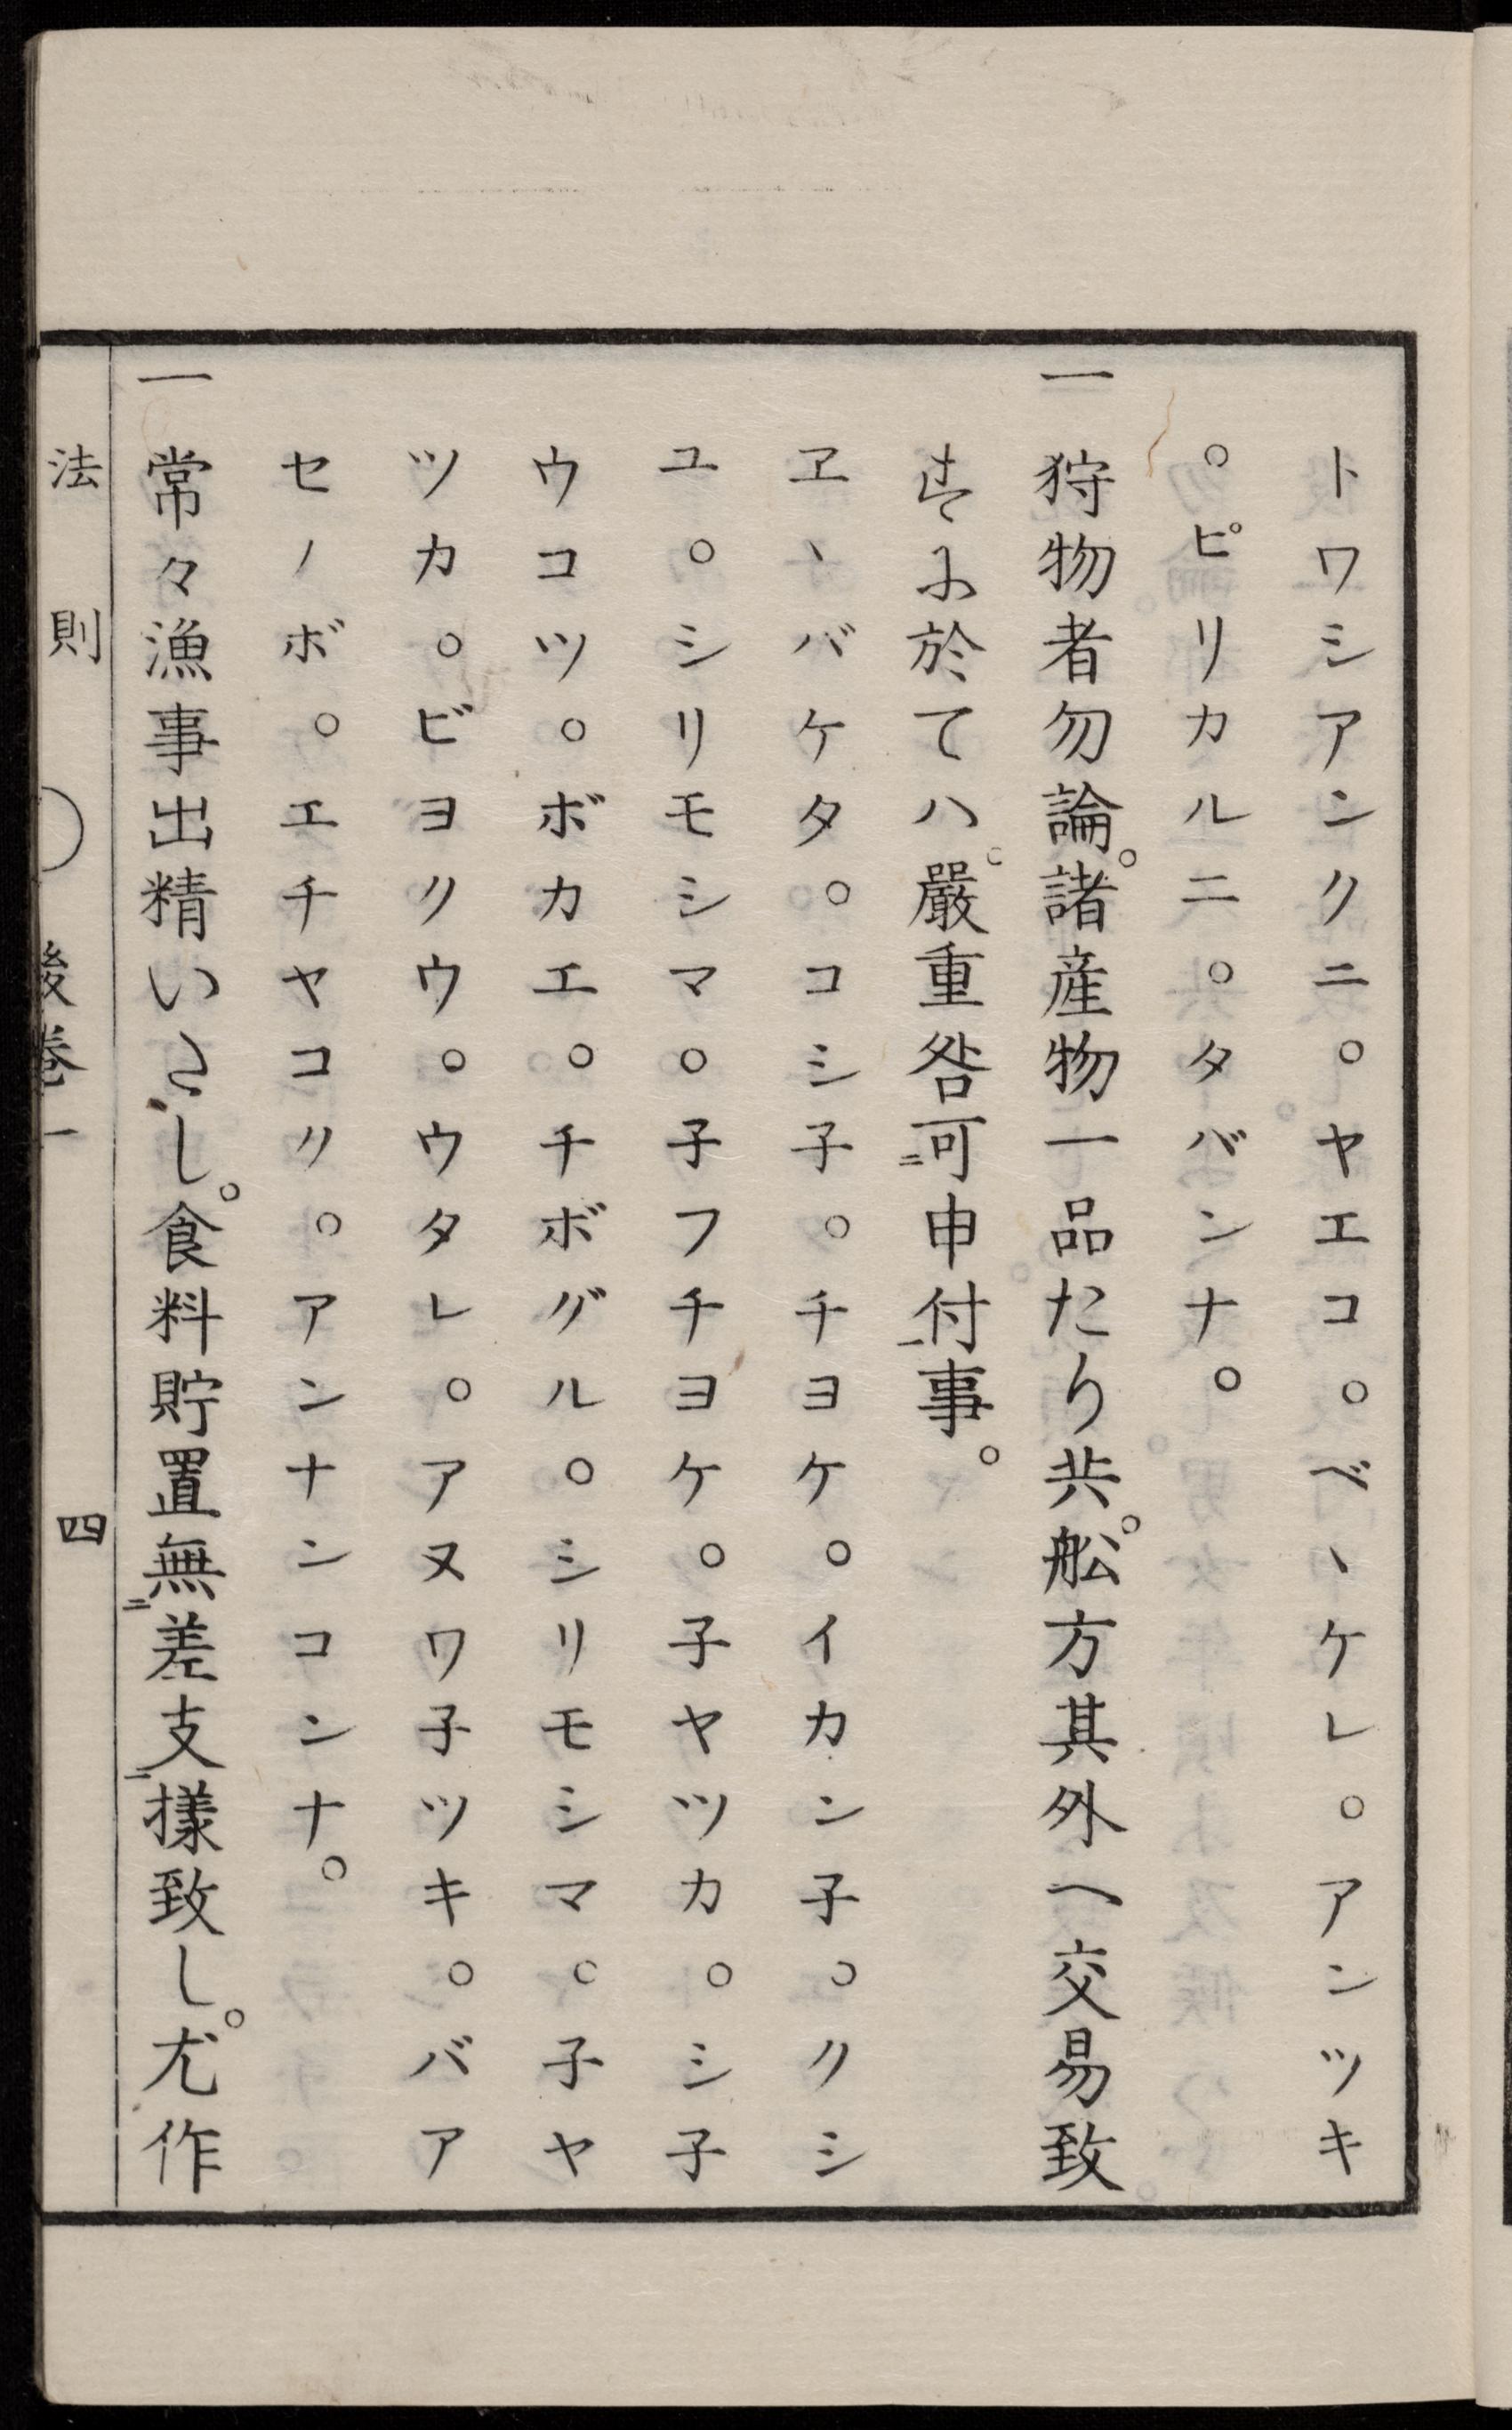 トワシアンクニ。ヤエコ。ベヽケレ。アンツキ
。ピリカルニ。タバンナ。
一 狩物者勿論。諸産物一品たり共。舩方其外へ交易致
すに於てハ。嚴重咎可二申付一事。
ヱヽバケタ。コシ子。チヨケ。イカン子。クシ
ユ。シリモシマ。子フチヨケ。子ヤツカ。シ子
ウコツ。ボカエ。チボグル。シリモシマ。子ヤ
ツカ。ビヨクウ。ウタレ。アヌワ子ツキ。バア
セノボ。エチヤコク。アンナンコンナ。
一 常々漁事出精いたし。食料貯置無二差支一樣致し。尤作
法則 後巻一 四